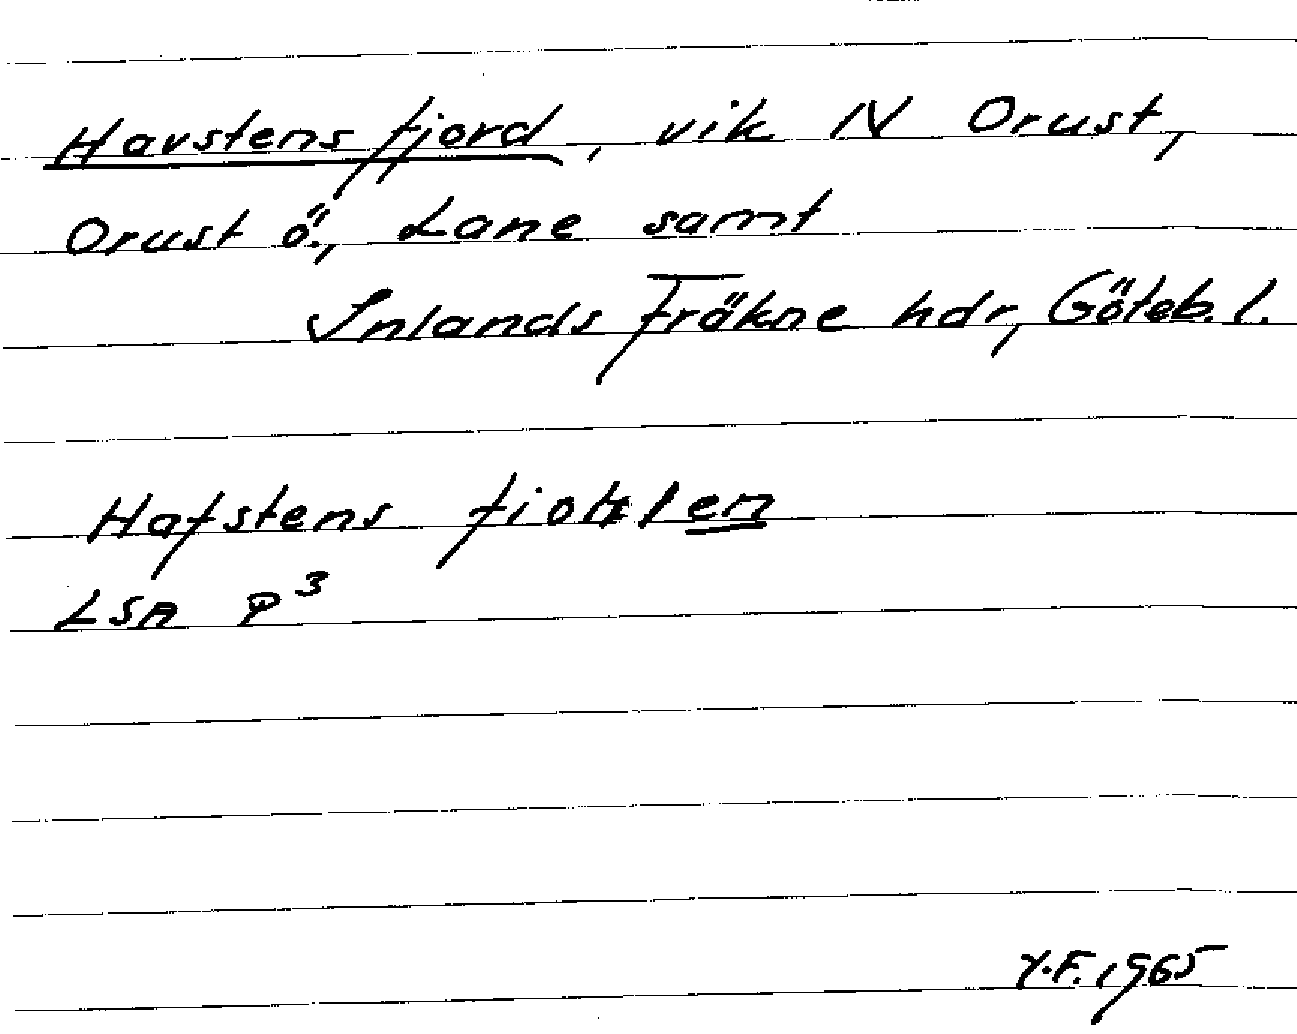 Havstens fjord, vik N Orust,
Orust ö., Lane samt
Inlands Fräkne hdr, Göteb. l.
Hafstens
LSA P³
Y.F. 1965